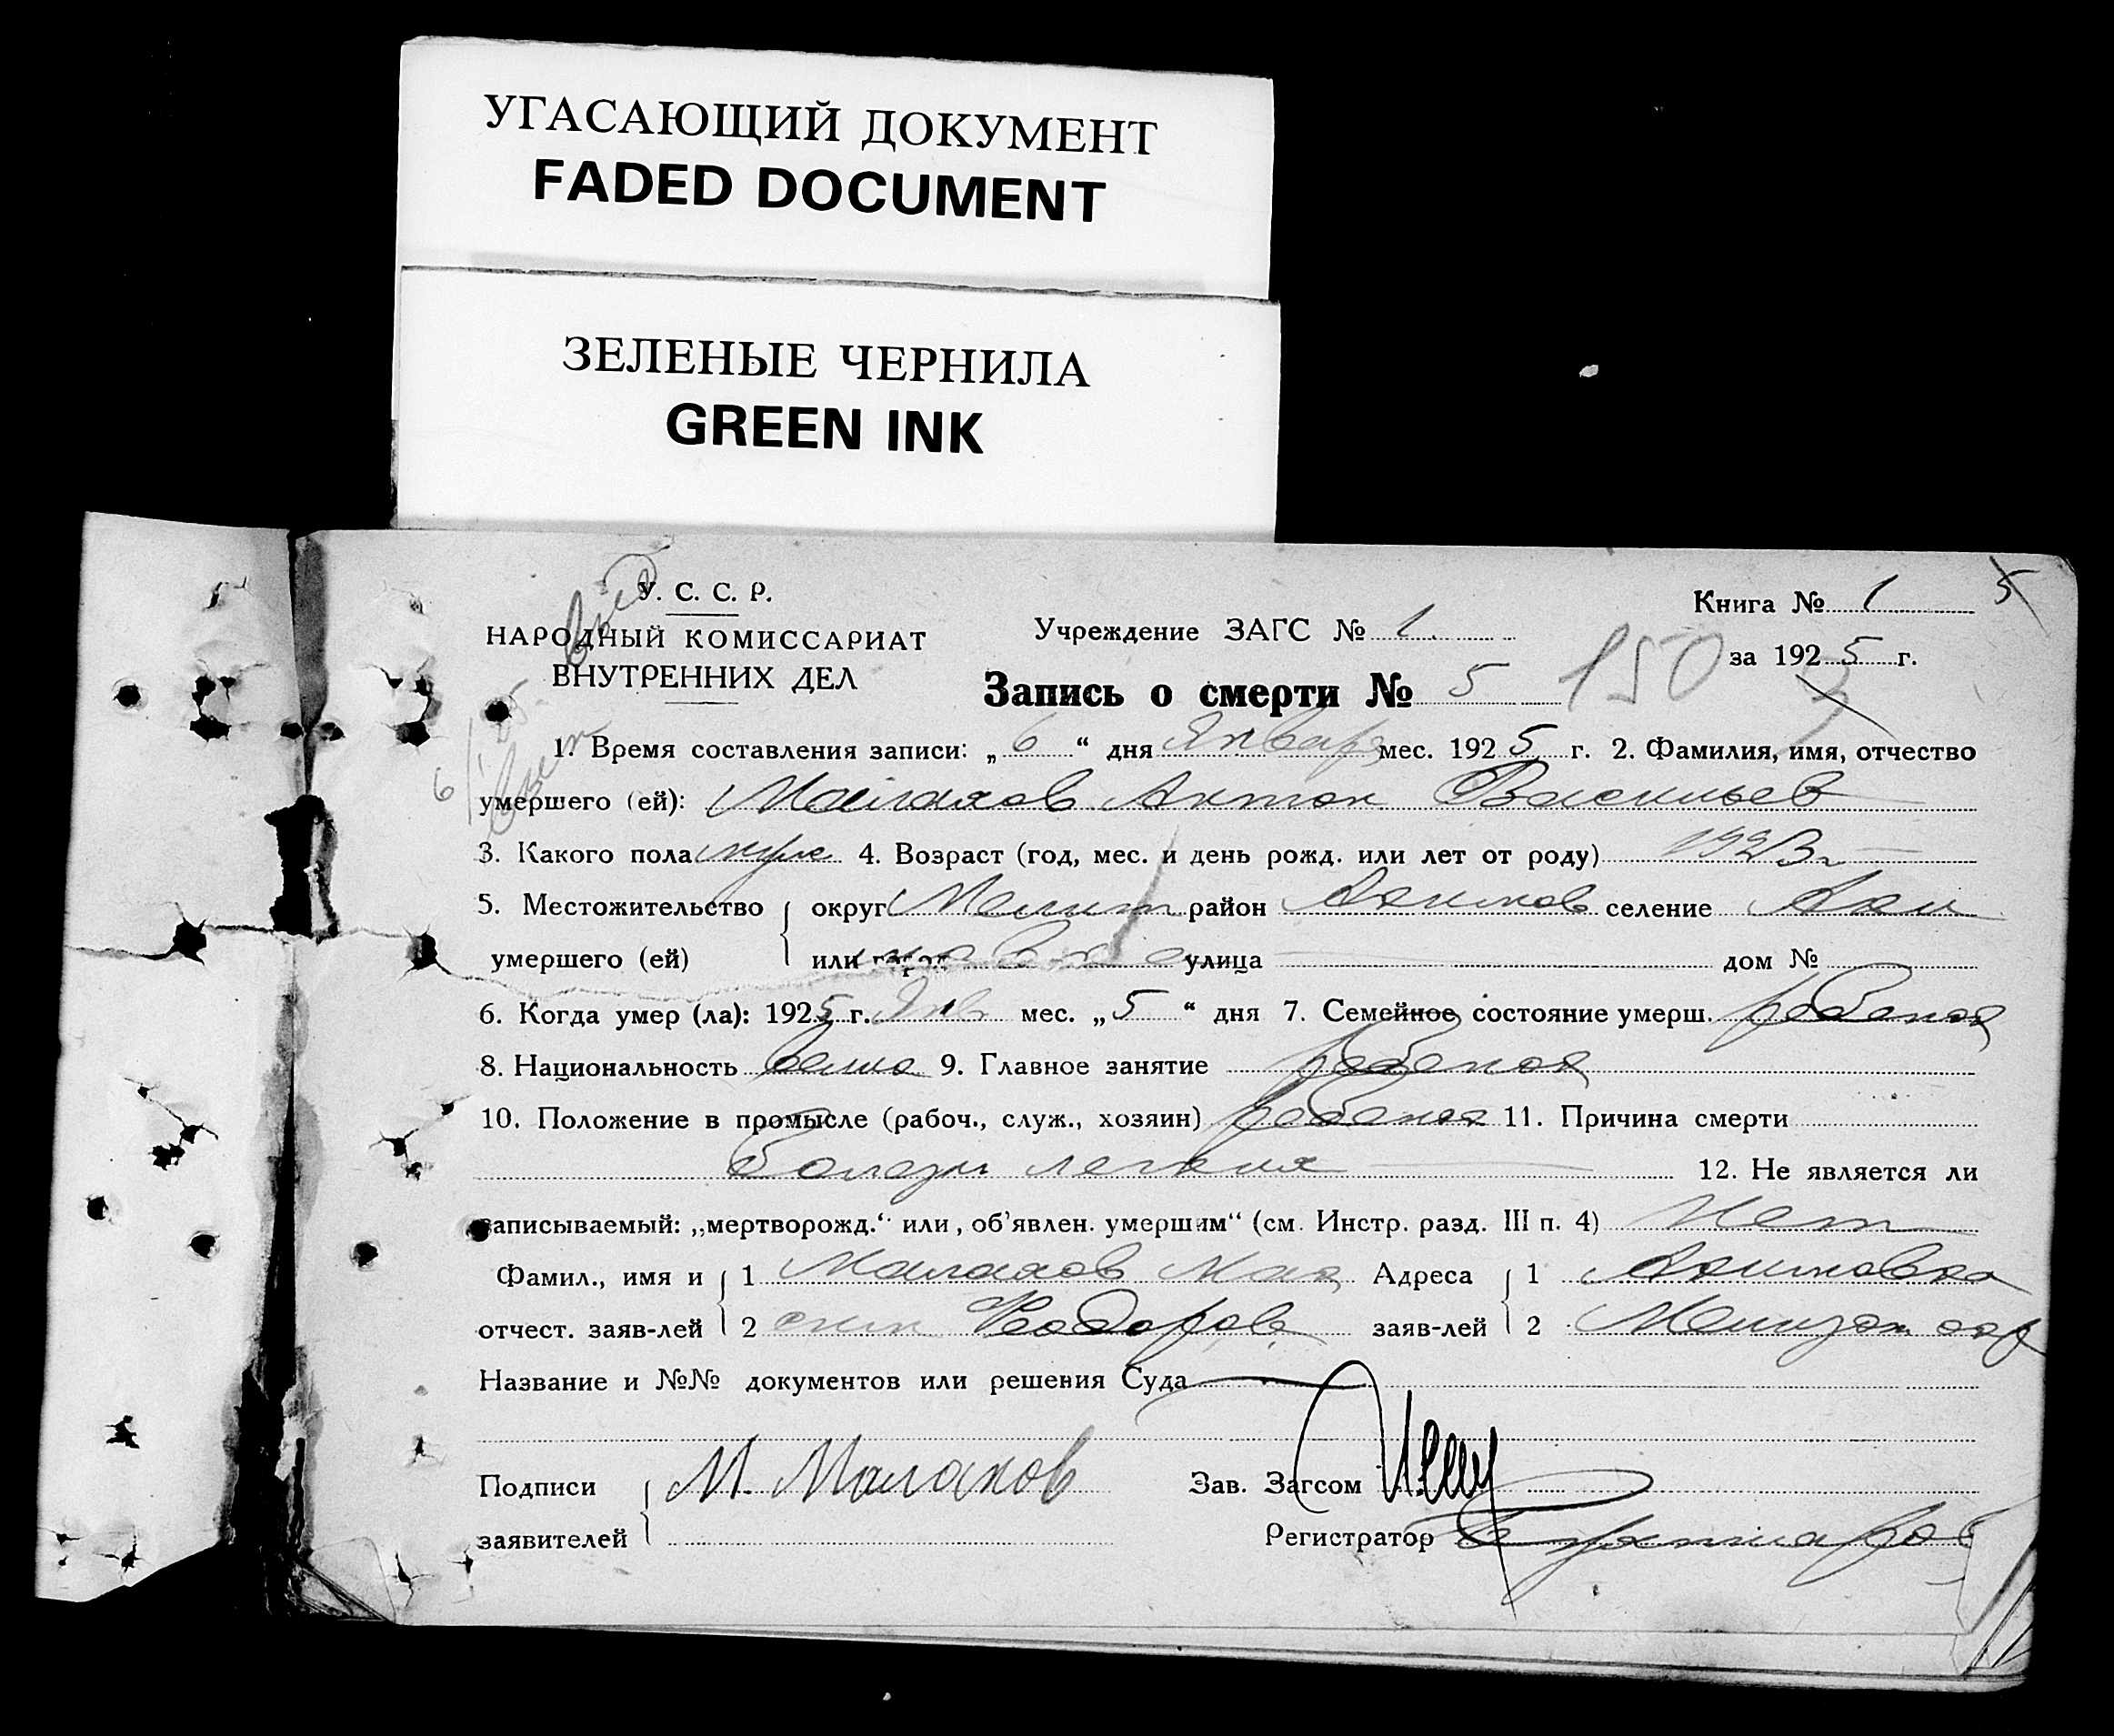 УГАСАЮЩИЙ ДОКУМЕНТ
FADED DOCUMENT
ЗЕЛЕНЫЕ ЧЕРНИЛА
GREEN INK
У. С. С. Р.
НАРОДНЫЙ КОМИССАРИАТ
ВНУТРЕННИХ ДЕЛ
Учреждение ЗАГС № 1
Книга № 1 5
за 1925 г.
Запись о смерти № 5 150
1. Время составления записи: „6“ дня Января мес. 1925 г. 2. Фамилия, имя, отчество
умершего (ей): Малахов Антон Васильев
3. Какого пола муж 4. Возраст (год, мес. и день рожд. или лет от роду) 1923 г
5. Местожительство округ Мелит район Акимов селение Аки
умершего (ей) или город улица дом №
6. Когда умер (ла): 1925 г. Янв мес. „5“ дня 7. Семейное состояние умерш. ребенок
8. Национальность 9. Главное занятие ребенок
10. Положение в промысле (рабоч., служ., хозяин) ребенок 11. Причина смерти
12. Не является ли
записываемый: „мертворожд.“ или, об'явлен. умершим“ (см. Инстр. разд. III п. 4) Нет
Фамил., имя и 1 Малахов Мак Адреса 1 Акимовка
отчест. заяв-лей 2 сим Федоров заяв-лей 2 окр
Название и №№ документов или решения Суда
Подписи М. Малахов Зав. Загсом
заявителей Регистратор